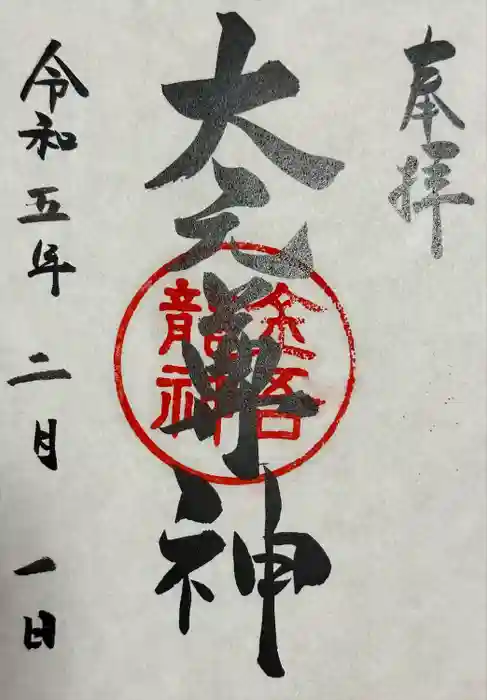 奉拝
大元尊神
金吾
龍神
令和五年二月一日